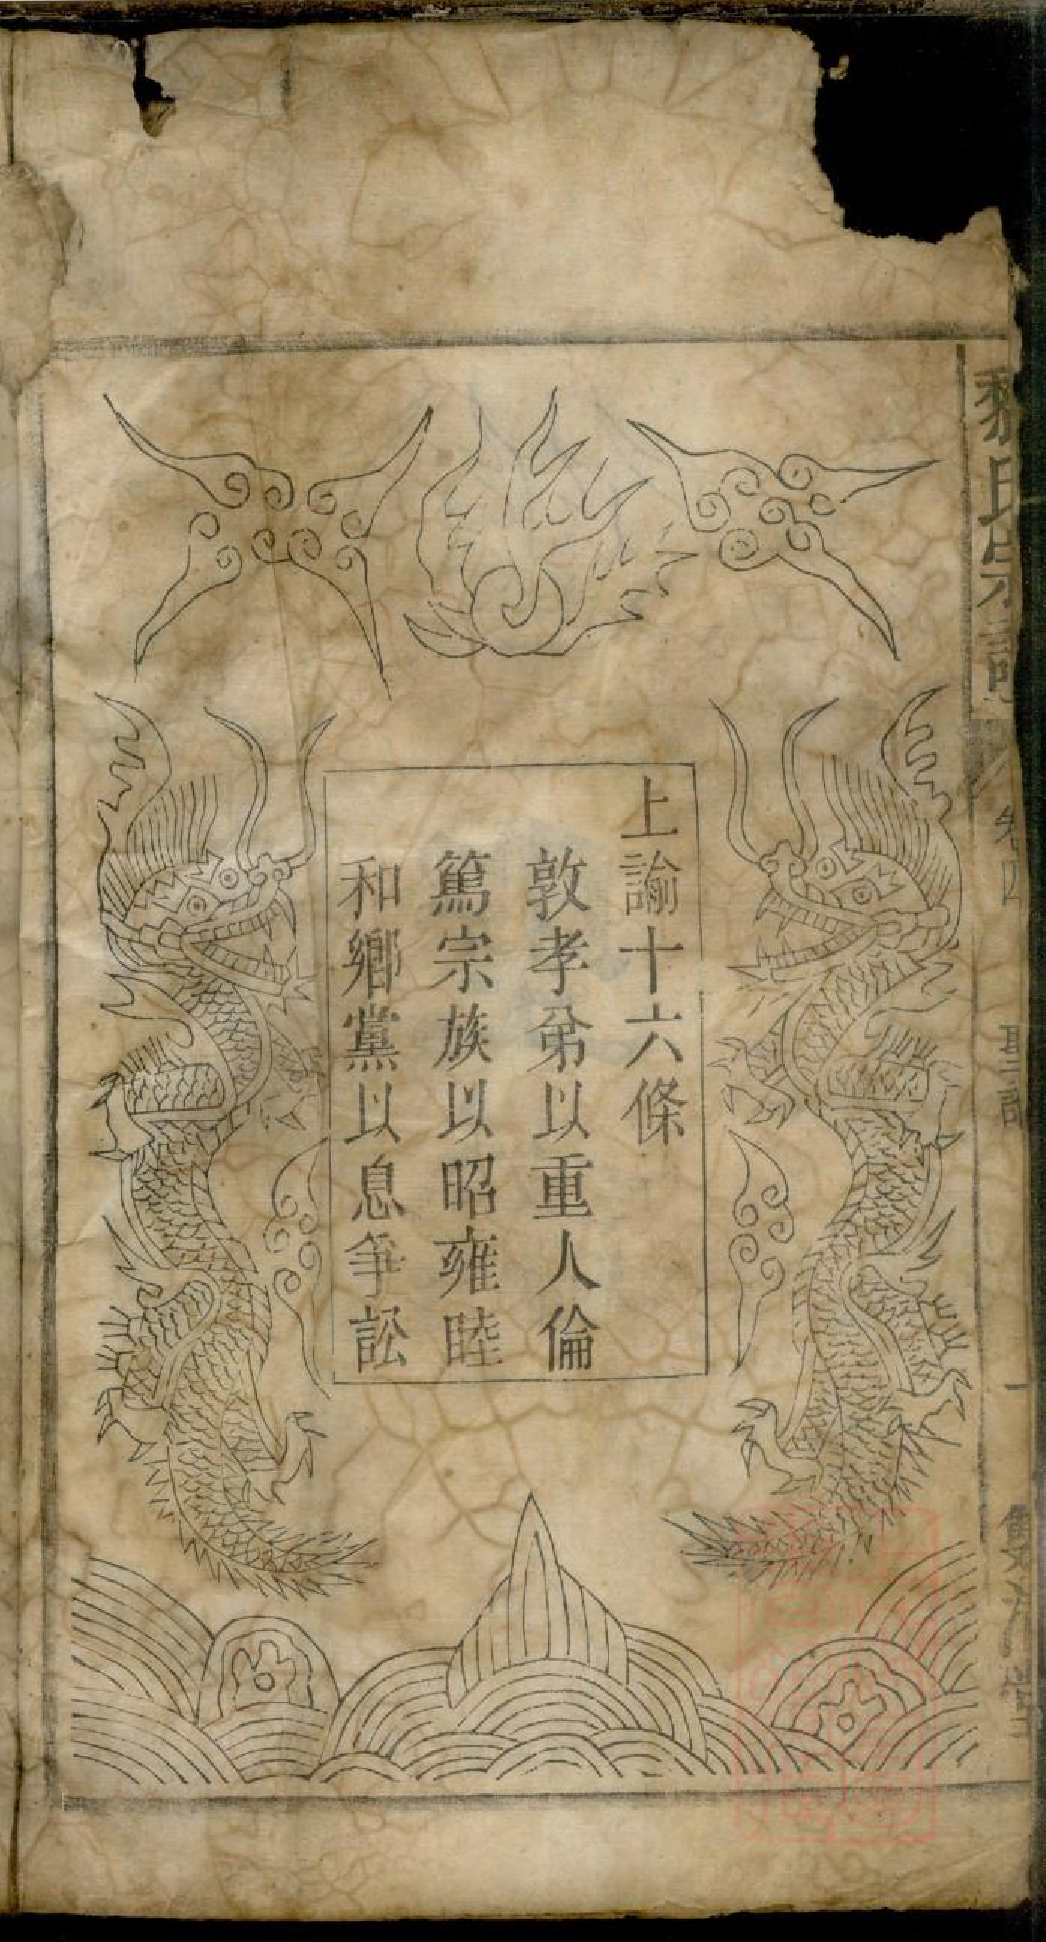 上諭十六條
敦孝弟以重人倫
篤宗族以昭雍睦
和鄉黨以息爭訟
氏宗譜
卷四
聖諭
一